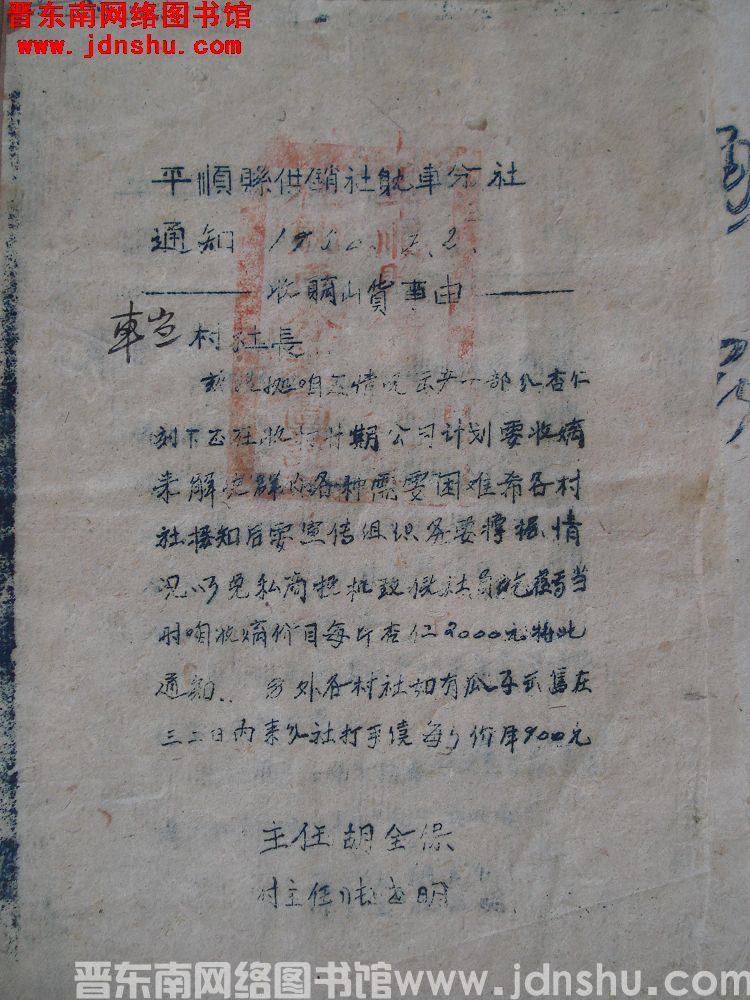 晋东南网络图书馆
www. jdnshu. com
平順縣供銷社虹車分社
通知 195 . . 2.
收購山貨事由
車 村社長
兹 咱 情况 产一部分杏仁
刻下正在收打时期公司计划要收購
来解决群众各种需要困难希各村
社接知后要宣传组织务要撑握情
况以免私商投机致使社員吃亏当
时咱收購价目每斤杏仁2000元特此
通知.. 另外各村社如有瓜子 售在
三二日内来分社打手续每斤价 900元
主任胡全保
付主任 明
晋东南网络图书馆www. jdnshu. com